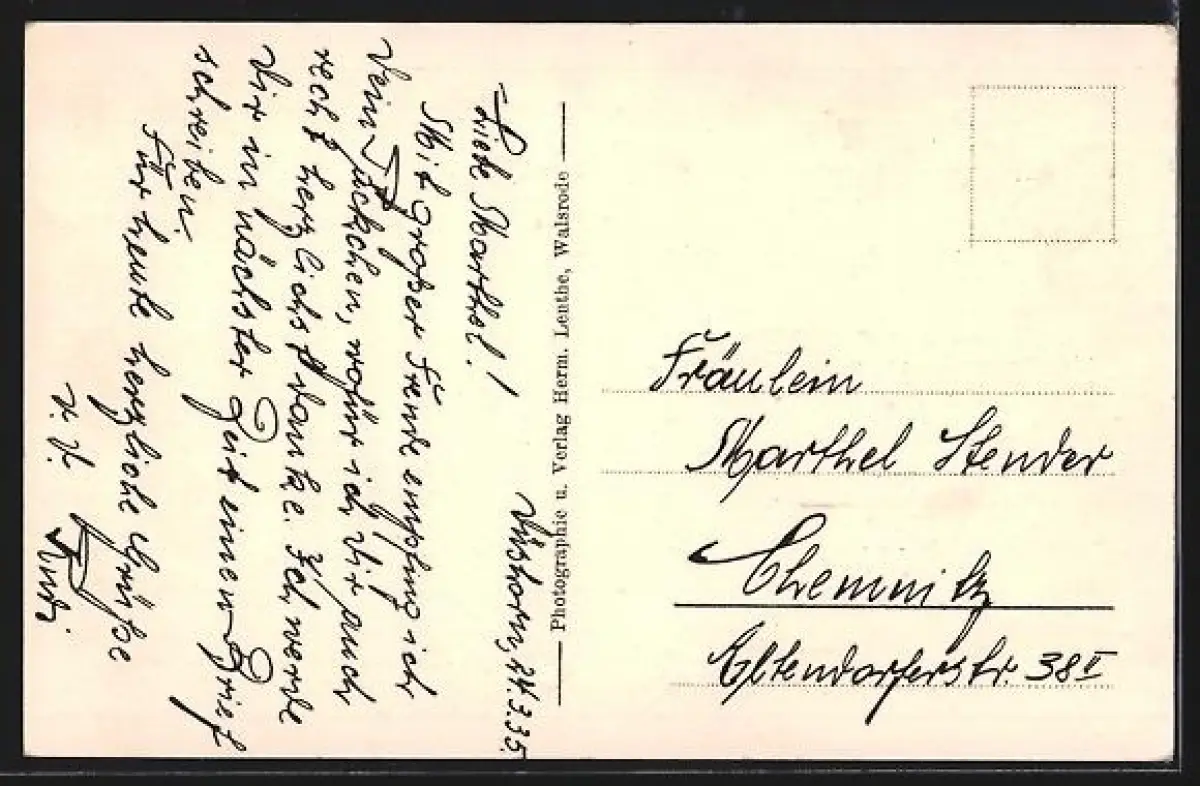 Düshorn, 24.3.35.
Liebe Marthel!
Mit großer Freude empfing ich
Dein Päckchen, wofür ich Dir auch
recht herzlichst danke. Ich werde
Dir in nächster Zeit einen Brief
schreiben.
Für heute herzliche Grüße
v. D.
Photographie u. Verlag Herm. Lenthe, Walsrode
Fräulein
Marthel Stender
Chemnitz
38 II